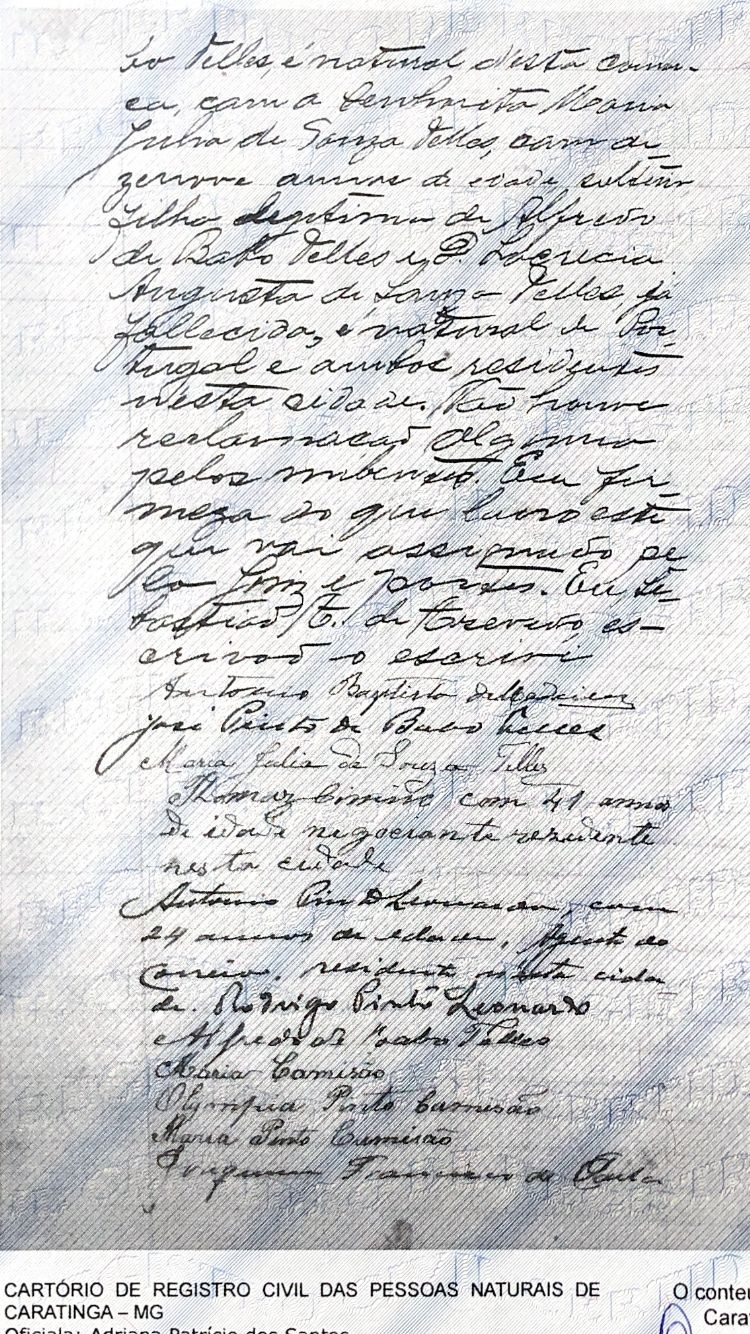 bo Telles, é natural desta comar-
ca, com a Senhorita Maria
Julia de Souza Telles, com de
zenove annos de edade, solteira
filha legitima de Alfredo
de Babo Telles e D. Lucrecia
Augusta de Souza Telles, já
fallecida, é natural de Por-
tugal e ambos residentes
nesta cidade. Não houve
reclamação alguma
pelos nubentes. Em fir-
meza do que lavro este
que vai assignado pe
lo Juiz e partes. Eu Se-
bastião de Azevedo, es-
crivão o escrivi
Antonio Baptista de Medeiros
José Pinto de Babo Telles
Maria Julia de Souza Telles
Thomaz com 41 annos
de idade negociante rezidente
nesta cidade
Antonio Pinto Leonardo, com
24 annos de edade, Agente do
Correio, residente nesta cida
de. Rodrigo Pinto Leonardo
Alfredo de Babo Telles
Maria Camisão
Olympia Pinto Camisão
Maria Pinto Camisão
Joaquim Francisco de Paula
CARTÓRIO DE REGISTRO CIVIL DAS PESSOAS NATURAIS DE
CARATINGA – MG
Oficiala: Adriana Patrício dos Santos
O conteú
Cara